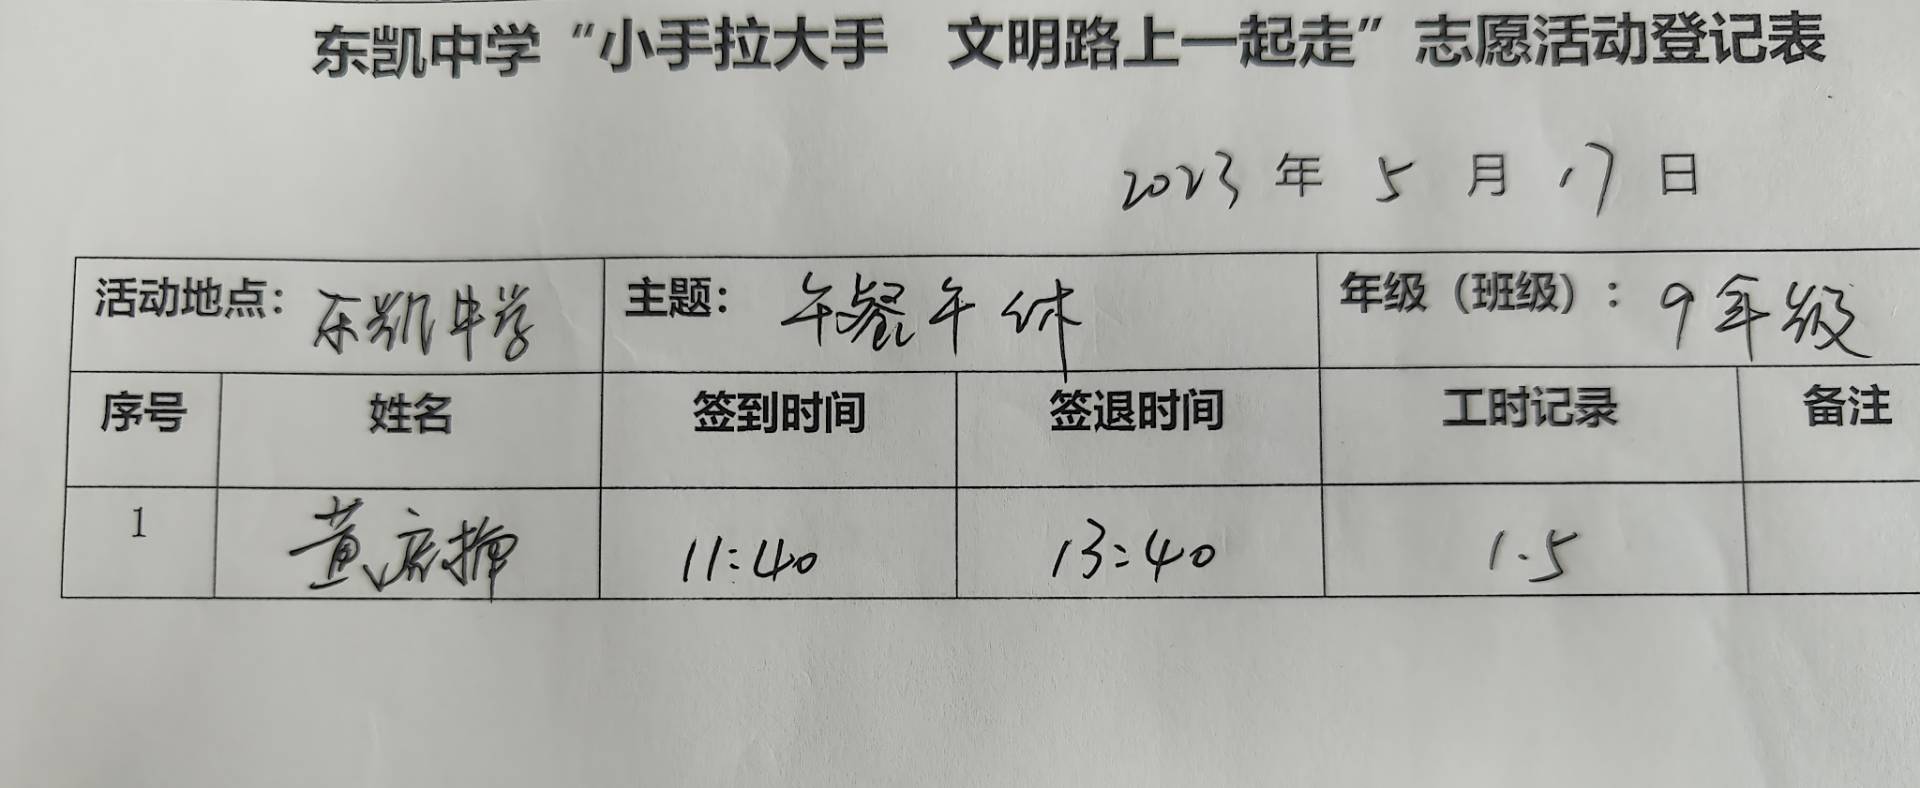 东凯中学“小手拉大手 文明路上一起走”志愿活动登记表
2023 年 5 月 17 日
活动地点：东凯中学 主题：午餐午休 年级（班级）：9年级
序号 姓名 签到时间 签退时间 工时记录 备注
1 黄 11:40 13:40 1.5